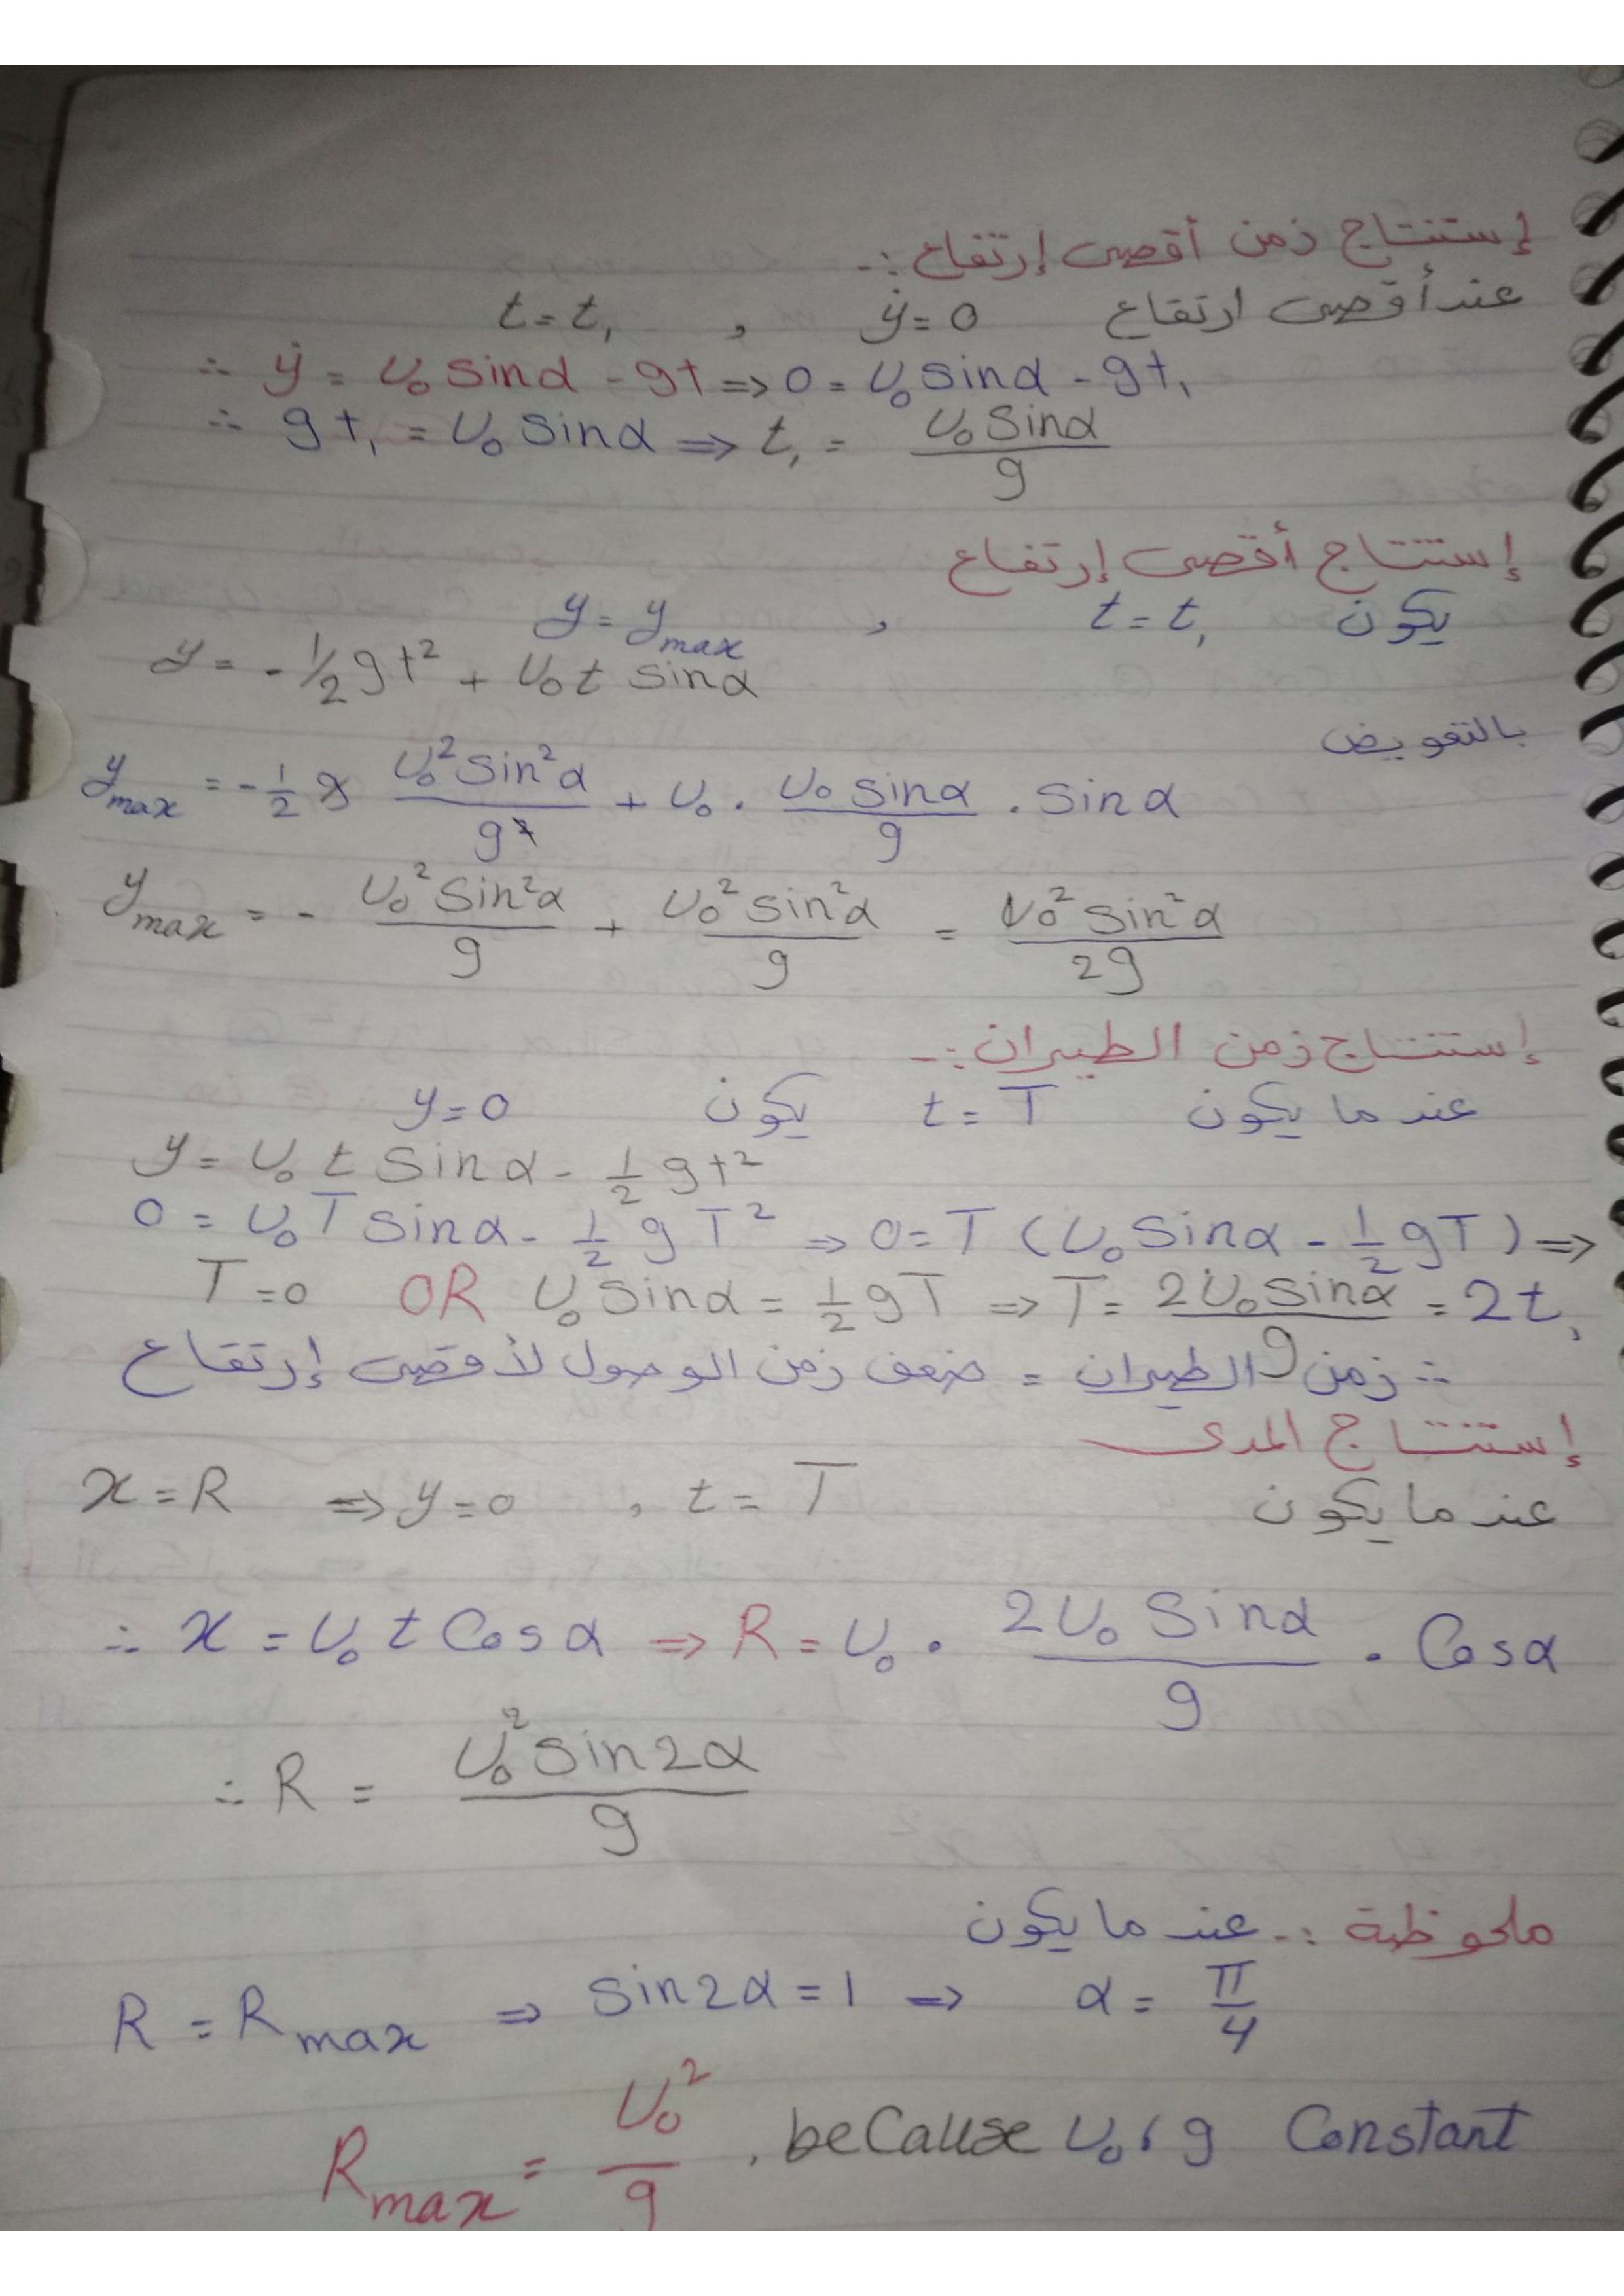 إستنتاج زمن أقصى إرتفاع :-
عند أقصى ارتفاع ẏ = 0 , t = t₁
∴ ẏ = U₀ sinα - gt => 0 = U₀ sinα - gt₁
∴ gt₁ = U₀ sinα => t₁ = U₀ sinα / g
إستنتاج أقصى إرتفاع
يكون t = t₁ , y = y max
y = - 1/2 gt² + U₀ t sinα
بالتعويض
y max = - 1/2 g U₀² sin²α / g² + U₀ . U₀ sinα / g . sinα
y max = - U₀² sin²α / g + U₀² sin²α / g = U₀² sin²α / 2g
إستنتاج زمن الطيران :-
عندما يكون t = T يكون y = 0
y = U₀ t sinα - 1/2 gt²
0 = U₀ T sinα - 1/2 g T² => 0 = T (U₀ sinα - 1/2 gT) =>
T = 0 OR U₀ sinα = 1/2 gT => T = 2U₀ sinα / g = 2t₁
∴ زمن الطيران = ضعف زمن الوصول لأقصى إرتفاع
إستنتاج المدى
عندما يكون x = R => y = 0 , t = T
∴ x = U₀ t Cosα => R = U₀ . 2U₀ Sinα / g . Cosα
∴ R = U₀² sin2α / g
ملحوظة :- عندما يكون
R = R max => sin2α = 1 => α = π/4
R max = U₀² / g , beCause U₀ , g Constant